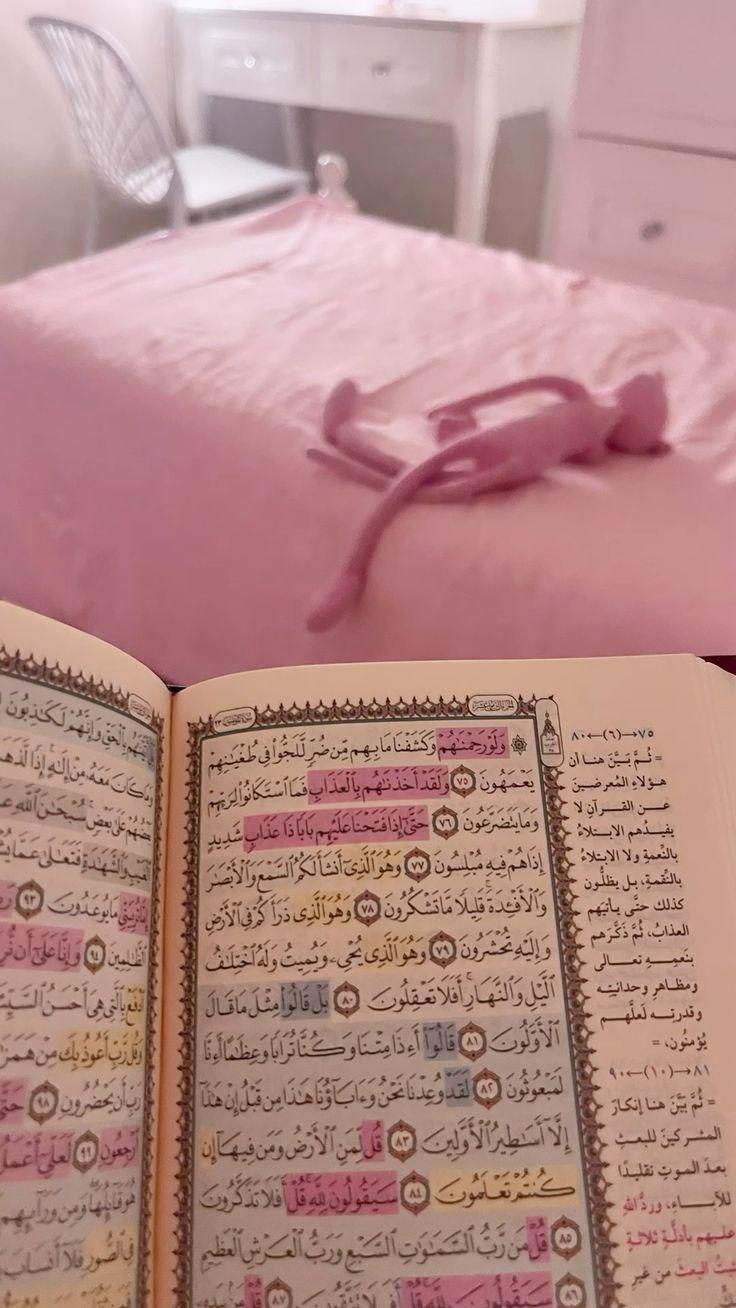 سورة المؤمنون ٢٣
۞ وَلَوۡ رَحِمۡنَٰهُمۡ وَكَشَفۡنَا مَا بِهِم مِّن ضُرّٖ لَّلَجُّواْ فِي طُغۡيَٰنِهِمۡ
يَعۡمَهُونَ ٧٥ وَلَقَدۡ أَخَذۡنَٰهُم بِٱلۡعَذَابِ فَمَا ٱسۡتَكَانُواْ لِرَبِّهِمۡ
وَمَا يَتَضَرَّعُونَ ٧٦ حَتَّىٰٓ إِذَا فَتَحۡنَا عَلَيۡهِم بَابٗا ذَا عَذَابٖ شَدِيدٍ
إِذَا هُمۡ فِيهِ مُبۡلِسُونَ ٧٧ وَهُوَ ٱلَّذِيٓ أَنشَأَ لَكُمُ ٱلسَّمۡعَ وَٱلۡأَبۡصَٰرَ
وَٱلۡأَفۡـِٔدَةَۚ قَلِيلٗا مَّا تَشۡكُرُونَ ٧٨ وَهُوَ ٱلَّذِي ذَرَأَكُمۡ فِي ٱلۡأَرۡضِ
وَإِلَيۡهِ تُحۡشَرُونَ ٧٩ وَهُوَ ٱلَّذِي يُحۡيِۦ وَيُمِيتُ وَلَهُ ٱخۡتِلَٰفُ
ٱلَّيۡلِ وَٱلنَّهَارِۚ أَفَلَا تَعۡقِلُونَ ٨٠ بَلۡ قَالُواْ مِثۡلَ مَا قَالَ
ٱلۡأَوَّلُونَ ٨١ قَالُوٓاْ أَءِذَا مِتۡنَا وَكُنَّا تُرَابٗا وَعِظَٰمًا أَءِنَّا
لَمَبۡعُوثُونَ ٨٢ لَقَدۡ وُعِدۡنَا نَحۡنُ وَءَابَآؤُنَا هَٰذَا مِن قَبۡلُ إِنۡ هَٰذَآ
إِلَّآ أَسَٰطِيرُ ٱلۡأَوَّلِينَ ٨٣ قُل لِّمَنِ ٱلۡأَرۡضُ وَمَن فِيهَآ إِن
كُنتُمۡ تَعۡلَمُونَ ٨٤ سَيَقُولُونَ لِلَّهِۚ قُلۡ أَفَلَا تَذَكَّرُونَ
٨٥ قُلۡ مَن رَّبُّ ٱلسَّمَٰوَٰتِ ٱلسَّبۡعِ وَرَبُّ ٱلۡعَرۡشِ ٱلۡعَظِيمِ
٨٦ سَيَقُولُونَ لِلَّهِۚ قُلۡ أَفَلَا تَتَّقُونَ ٨٧ قُلۡ مَنۢ بِيَدِهِۦ
٧٥→(٦)←٨٠
= ثُمَّ بَيَّنَ هنا أن
هؤلاءِ المُعرضينَ
عـن القـرآنِ لا
يفيـدُهم الابتـلاءُ
بالنِّعمةِ ولا الابتلاءُ
بالنِّقمةِ، بل يظلُّون
كذلك حتَّى يأتيَهم
العذابُ، ثُمَّ ذكَّرَهم
بنَعمِـهِ تعـالى
ومظاهرِ وحدانيتِه
وقدرتـه لعلَّهـم
يُؤمنُون، =
٨١→(١٠)←٩٠
= ثُمَّ بيَّنَ هنا إنكارَ
المشـركينَ للبعـثِ
بعدَ الموتِ تقليدًا
للآبـاءِ، وردَّ اللهِ
عليـهم بأدلَّةٍ ثلاثـةٍ
تُثبتُ البعثَ من غيرِ
بِٱلۡحَقِّ وَإِنَّهُمۡ لَكَٰذِبُونَ
وَمَا كَانَ مَعَهُۥ مِنۡ إِلَٰهٍۚ إِذٗا لَّذَهَبَ
بَعۡضُهُمۡ عَلَىٰ بَعۡضٖۚ سُبۡحَٰنَ ٱللَّهِ
ٱلۡغَيۡبِ وَٱلشَّهَٰدَةِ فَتَعَٰلَىٰ عَمَّا
تُرِيَنِّي مَا يُوعَدُونَ ٩٣
ٱلظَّٰلِمِينَ ٩٤ وَإِنَّا عَلَىٰٓ أَن
ٱدۡفَعۡ بِٱلَّتِي هِيَ أَحۡسَنُ
وَقُل رَّبِّ أَعُوذُ بِكَ مِنۡ
رَبِّ أَن يَحۡضُرُونِ ٩٨
ٱرۡجِعُونِ ٩٩ لَعَلِّيٓ أَعۡمَلُ
هُوَ قَآئِلُهَاۖ وَمِن وَرَآئِهِم
فِي ٱلصُّورِ فَلَآ أَنسَابَ